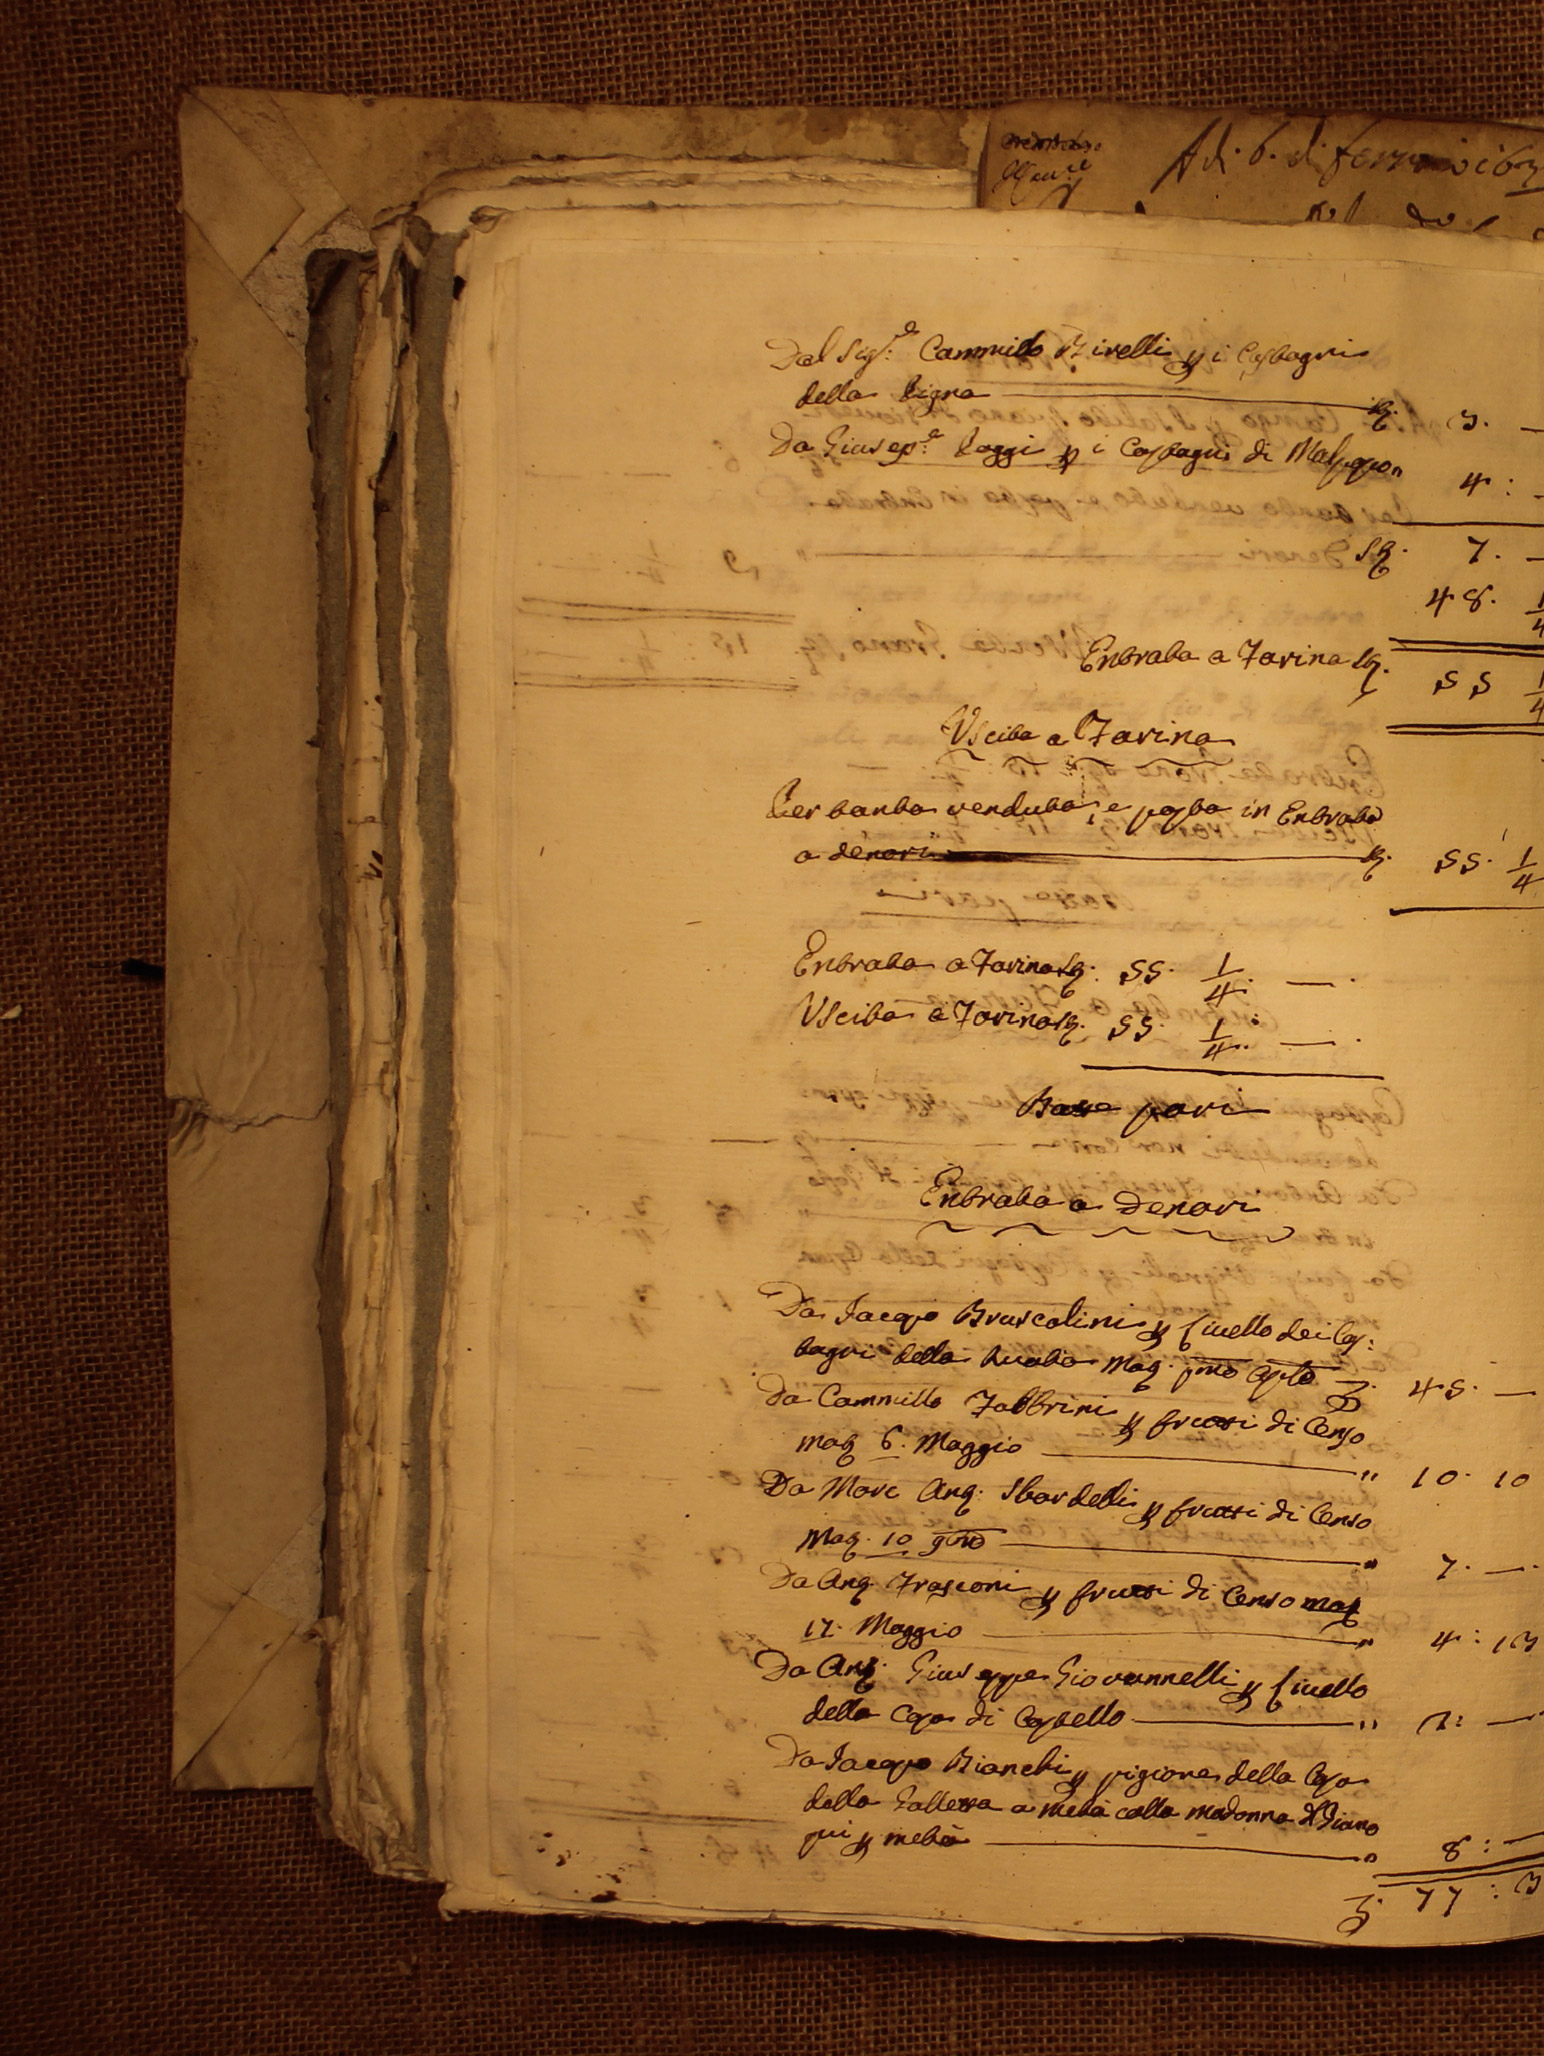 Adi. 6. di
Dal Sig.re Cammillo Birelli p i Castagni
della Pigna ——— sq. 3. —
Da Giusep.e Poggi p i Castagni di 4 : -
sq. 7. —
48. 1/4
Entrata a Farina sq. 55 1/4
Uscita a Farina
Per tanta venduta, e posta in Entrata
a denari ——— sq. 55. 1/4
Entrata a Farina sq. 55. 1/4. — .
Uscita a Farina sq. 55. 1/4. — .
Batte pari
Entrata a Denari
Da Jacopo Bruscolini p livello dei Cas:
tagni della mag. pmo £. 45. —
Da Cammillo Fabbrini p frutti di Censo
mag. 6. Maggio ——— " 10. 10
Da Marc Ang. Sbardelli p frutti di Censo
Mag. 10 gno ——— " 7. —.
Da Ang. Frasconi p frutti di Censo mag
17. Maggio ——— " 4 : 13
Da Ang. Giuseppe Giovannelli p livello
della Casa di Castello ——— " 2: —
Da Jacopo Bianchi p pigione della Casa
della a metà colla madonna del Piano
qui p metà ——— " 8 : —
£. 77 : 3